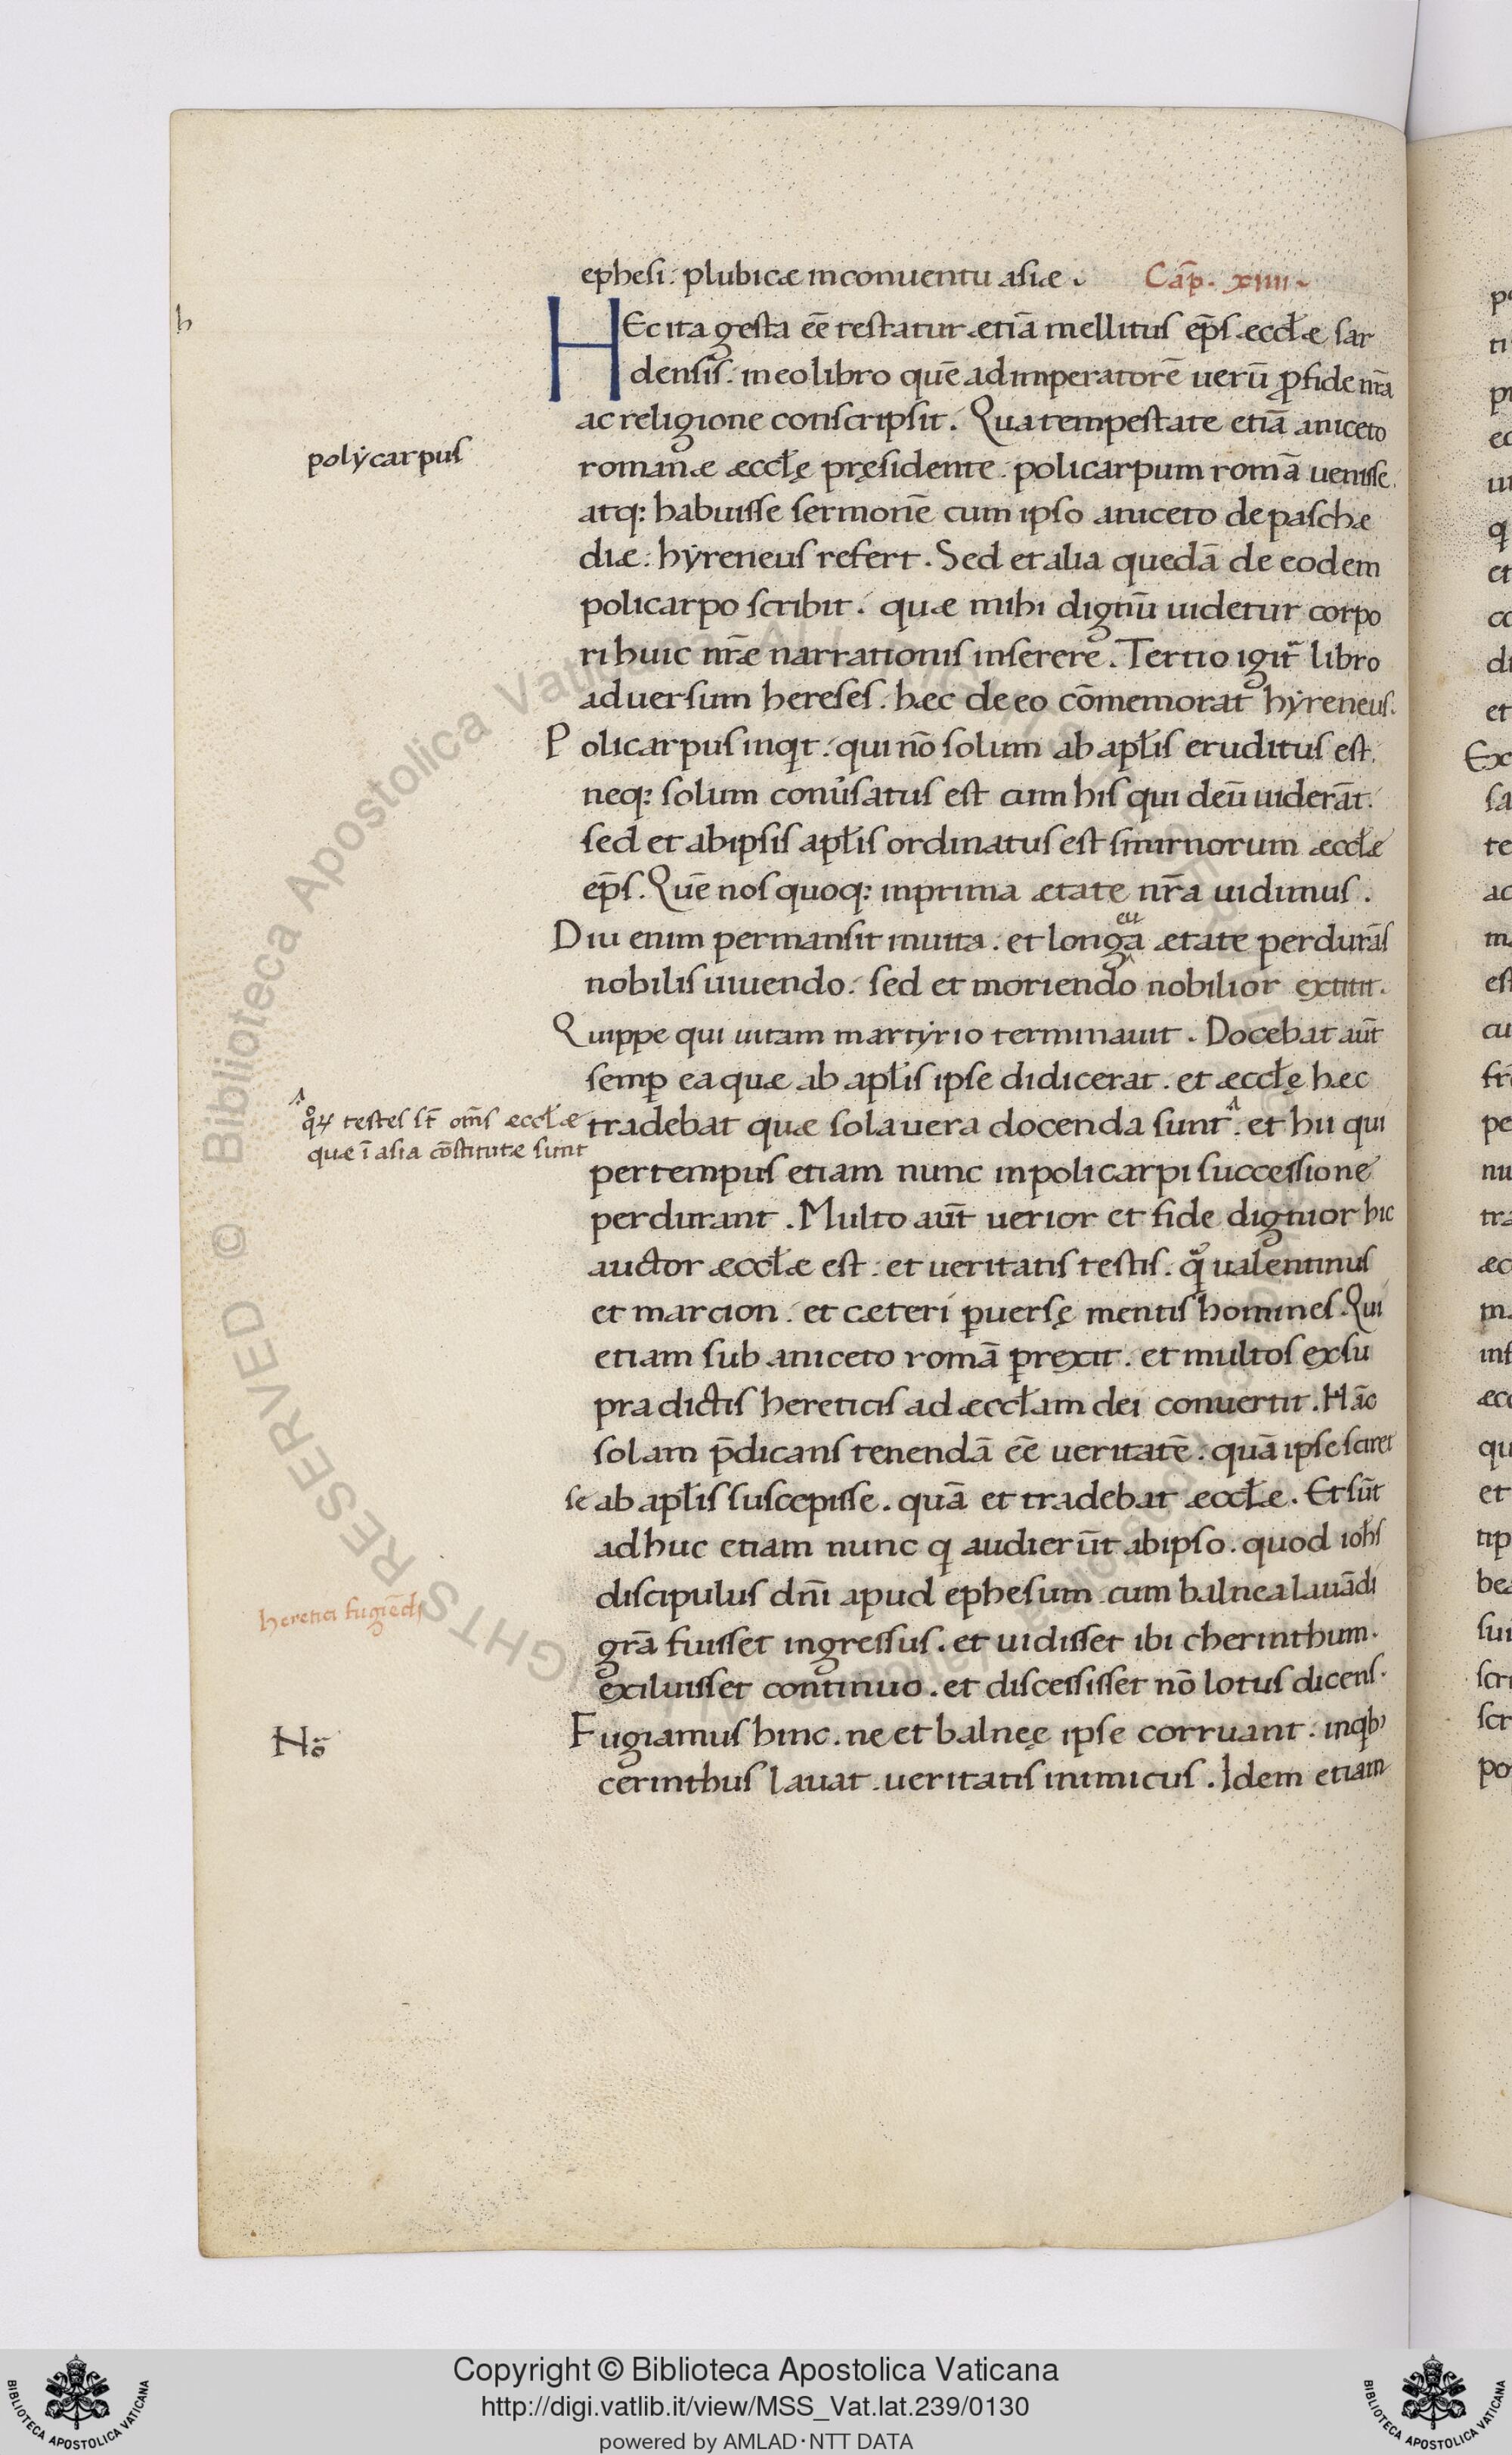 ephesi. plubicæ in conuentu asiæ. Cap̄. xiiii
h
HEc ita gesta eē testatur ætiā mellitus ep̄s æccłæ sar
densis. in eo libro quē ad imperatorē uerū ꝓ fide nr̄a
ac religione conscripsit. Qua tempestate etiā aniceto
polẏcarpus
romanæ æccłę pręsidente. policarpum romā uenisse.
atq: habuisse sermonē cum ipso aniceto de paschæ
diæ. hẏreneus refert. Sed et alia quedā de eodem
policarpo scribit. quæ mihi dignū uidetur corpo
ri huic nr̄æ narrationis inserere. Tertio igit̄ libro
aduersum hereses. hæc de eo cōmemorat hẏreneus.
Policarpus inqt. qui nō solum ab apłis eruditus est.
neq: solum conuersatus est cum his qui deū uiderāt.
sed et ab ipsis apłis ordinatus est smirnorum æccłæ
ep̄s. Quē nos quoq: in prima ætate nr̄a uidimus.
eu
Diu enim permansit in uita. et longa ætate perdurās
nobilis uiuendo. sed et moriendo nobilior extitit.
Quippe qui uitam martẏrio terminauit. Docebat aūt
semꝑ ea quæ ab apłis ipse didicerat. et æccłę hæc
qꝝ testes st̄ om̄s æccłæ
quæ ī asia cōstitutæ sunt
tradebat quæ sola uera docenda sunt. et hii qui
per tempus etiam nunc in policarpi successione
perdurant. Multo aūt uerior et fide dignior hic
auctor æccłæ est. et ueritatis testis. q̄ ualentinus
et marcion. et cæteri ꝑuersę mentis homines. Qui
etiam sub aniceto romā ꝑrexit. et multos ex su
pra dictis hereticis ad æccłam dei conuertit. Hāc
solam p̄dicans tenendā eē ueritatē. quā ipse sciret
se ab apłis suscepisse. quā et tradebat æccłæ. Et sūt
adhuc etiam nunc q audierūt ab ipso. quod ioħs
discipulus dn̄i apud ephesum cum balnea lauādi
heretici fugiēdi
grā fuisset ingressus. et uidisset ibi cherinthum.
exiluisset continuo. et discessisset nō lotus dicens.
Nō
Fugiamus hinc. ne et balneę ipse corruant. in qb'
cerinthus lauat. ueritatis inimicus. Idem etiam
Copyright © Biblioteca Apostolica Vaticana
http://digi.vatlib.it/view/MSS_Vat.lat.239/0130
powered by AMLAD·NTT DATA